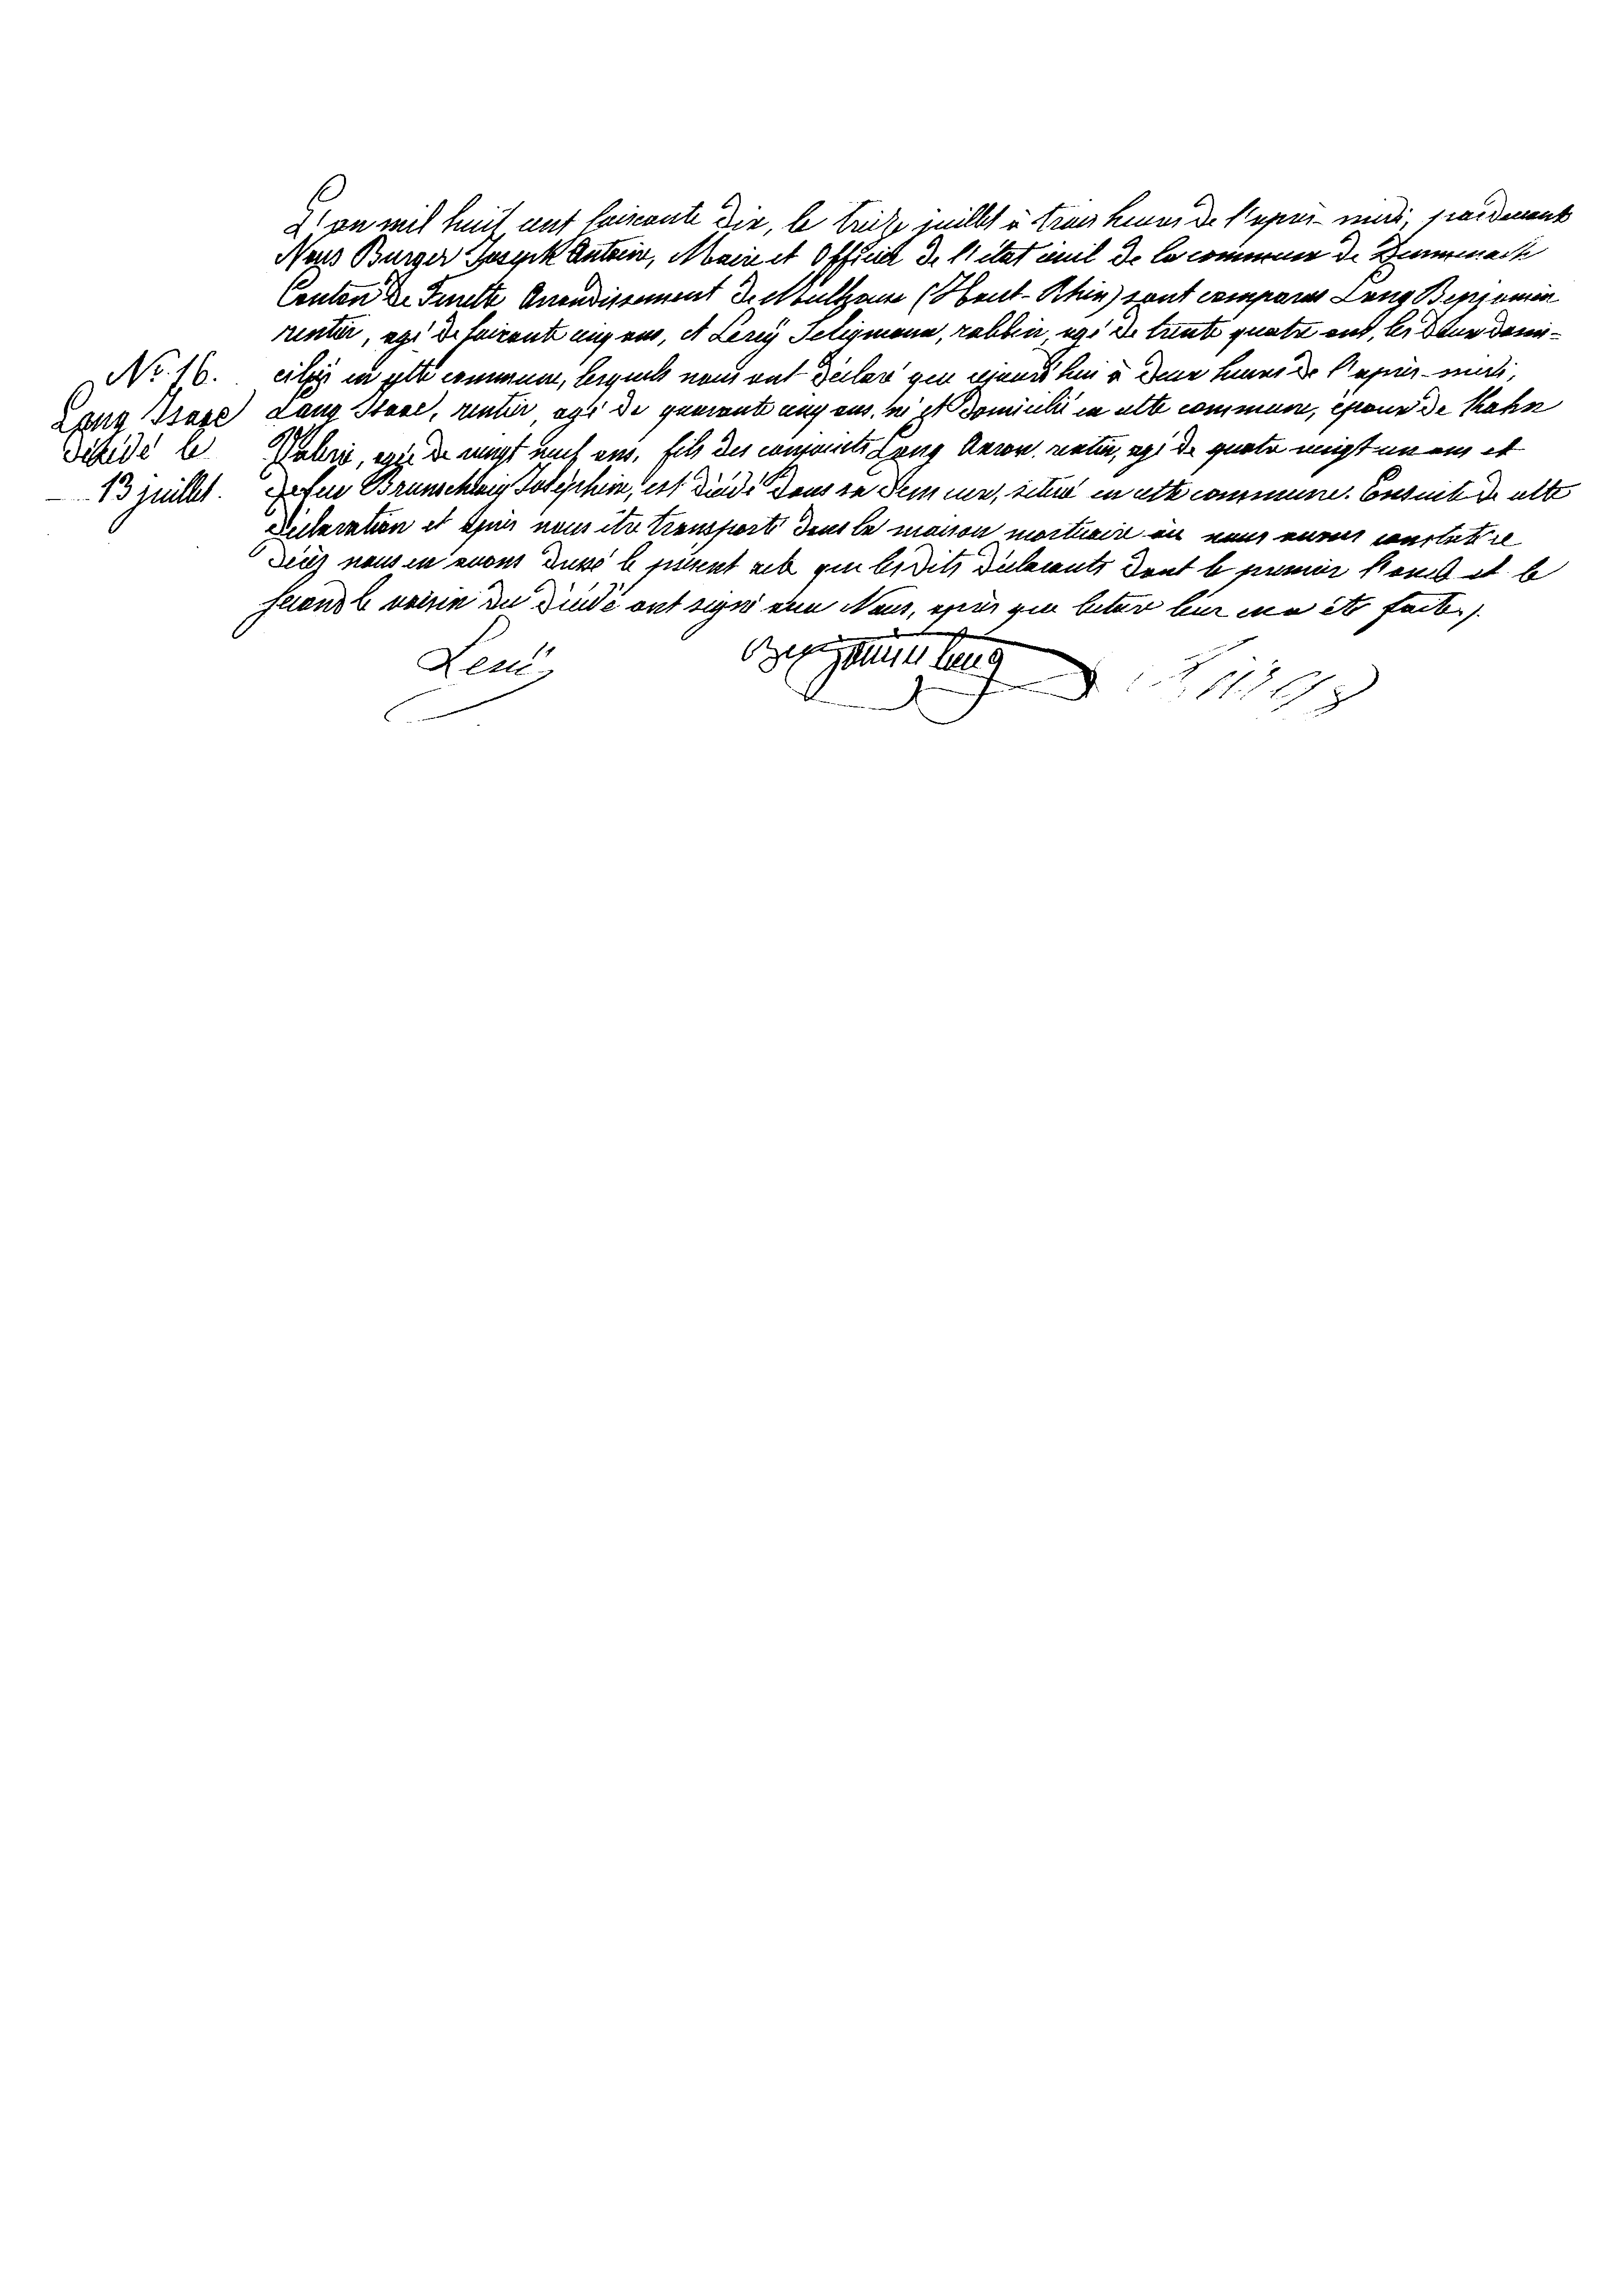 L'an mil huit cent soixante dix, le treize juillet à trois heures de l'après-midi, pardevant
Nous Burger Joseph Antoine, Maire et Officier de l'état civil de la commune de Durmenach
Canton de Ferrette Arrondissement de Mulhouse (Haut-Rhin) sont comparus Lang Benjamin
rentier, agé de soixante cinq ans, et Levÿ Seligmann, rabbin, agé de trente quatre ans, les deux domi-
N.º 16.
Lang Isaac
décédé le
13 juillet.
ciliés en cette commune, lesquels nous ont déclaré que ajourd'hui à deux heures de l'après-midi,
Lang Isaac, rentier, agé de quarante cinq ans, né et domicilié en cette commune, époux de Kahn
Valerie, agée de vingt neuf ans, fils des conjoints Lang Aaron, rentier, agé de quatre vingt un ans et
de feu Brunschwig Joséphine, est décédé dans sa demeure, située en cette commune. Ensuite de cette
déclaration et après nous être transporté dans la maison mortuaire où nous avons constaté ce
décès nous en avons dressé le présent acte que les dits déclarants dont le premier l'oncle et le
second le voisin du décédé ont signé avec Nous, après que lecture leur en a été faite.
Levÿ
Benjamin Lang